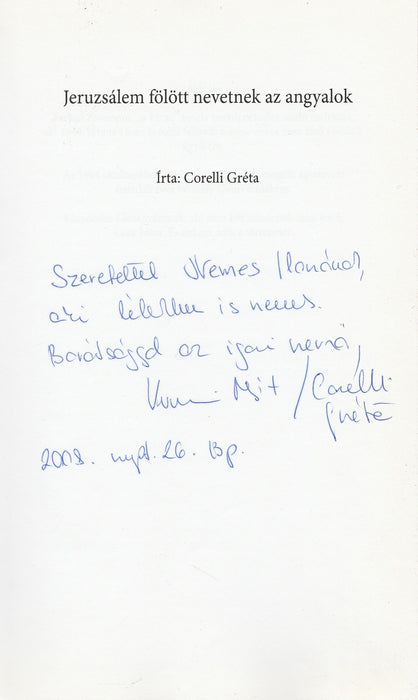 Jeruzsálem fölött nevetnek az angyalok
Írta: Corelli Gréta
Szeretettel Nemes Ilonának,
aki lélekben is nemes.
Barátsággal az igazi nevén
/ Corelli
Gréta
2008. 26. Bp.